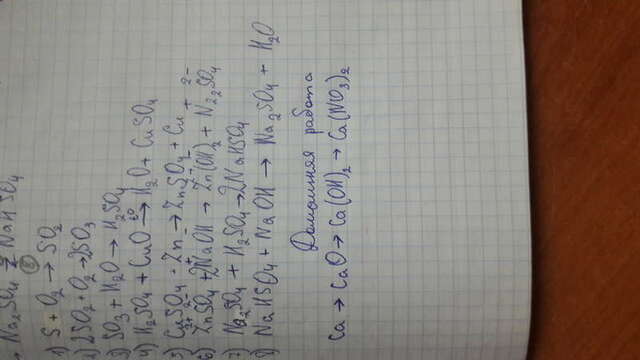 → Na₂SO₄ ⇄ NaHSO₄
⑧
1) S + O₂ → SO₂
2) 2SO₂ + O₂ → 2SO₃
3) SO₃ + H₂O → H₂SO₄
4) H₂SO₄ + CuO → H₂O + CuSO₄
5) CuSO₄ + Zn → ZnSO₄ + Cu
6) ZnSO₄ + 2NaOH → Zn(OH)₂ + Na₂SO₄
7) Na₂SO₄ + H₂SO₄ → 2NaHSO₄
8) NaHSO₄ + NaOH → Na₂SO₄ + H₂O
Домашняя работа
Ca → CaO → Ca(OH)₂ → Ca(NO₃)₂